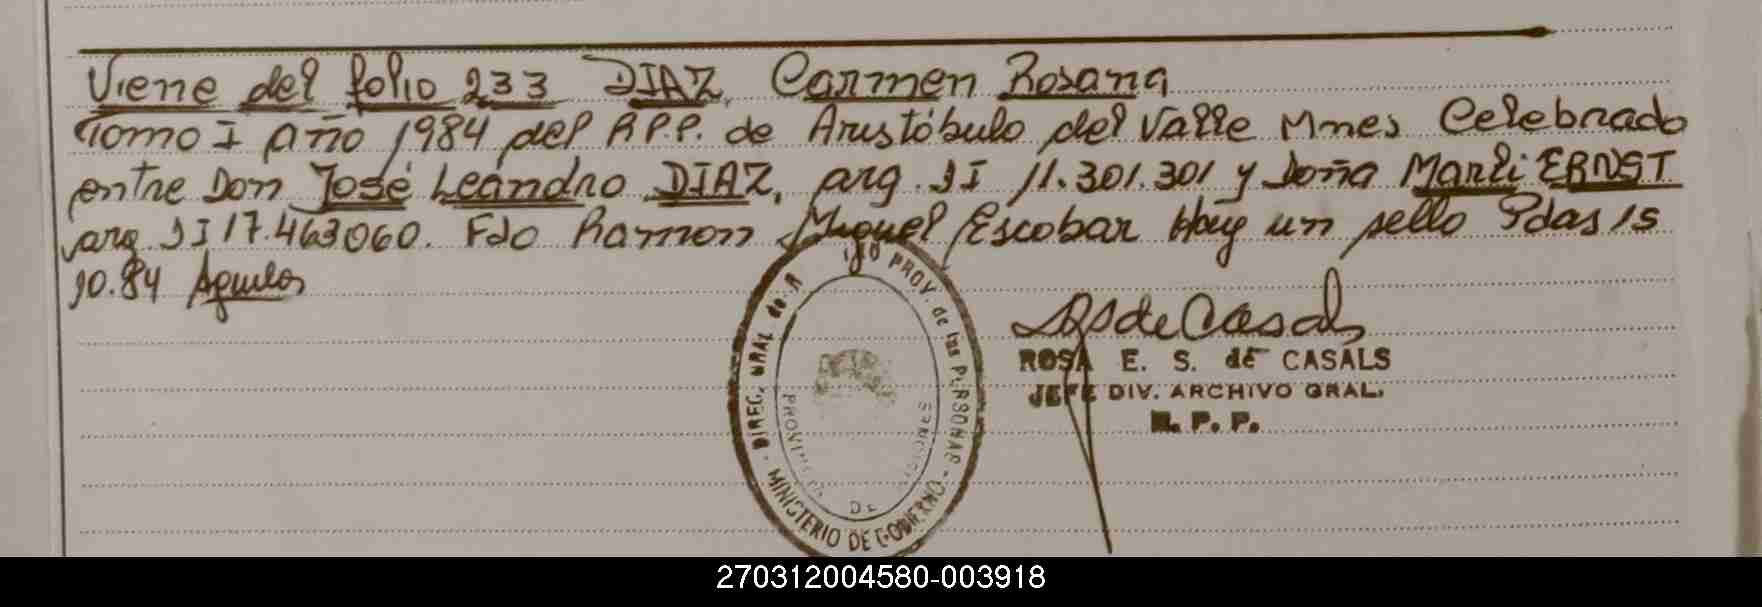 Viene del folio 233 DIAZ, Carmen Rosana
Tomo I año 1984 del R.P.P. de Aristóbulo del Valle Mnes Celebrado
entre Don José Leandro DIAZ, arg. DI 11.301.301 y Doña Marli ERNST
arg DI 17.463060. Fdo Ramon Miguel Escobar Hay un sello Pdas 15
10.84
DIREC. GRAL de PROV. de las PERSONAS - MINISTERIO DE GOBIERNO -
PROVINCIA DE MISIONES
RS de Casals
ROSA E. S. de CASALS
JEFE DIV. ARCHIVO GRAL.
R. P. P.
270312004580-003918